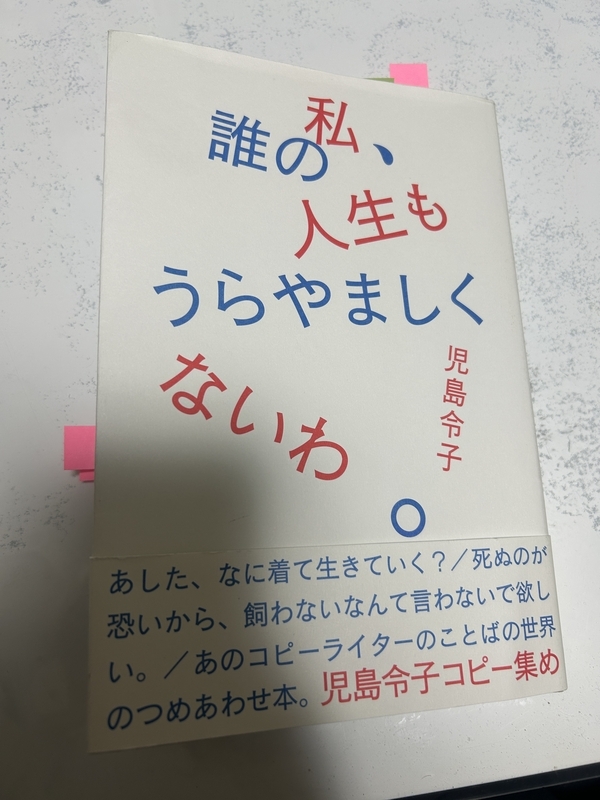 私、
誰の
人生も
うらやましく
ないわ
。
児島令子
あした、なに着て生きていく?／死ぬのが
恐いから、飼わないなんて言わないで欲し
い。／あのコピーライターのことばの世界
のつめあわせ本。児島令子コピー集め